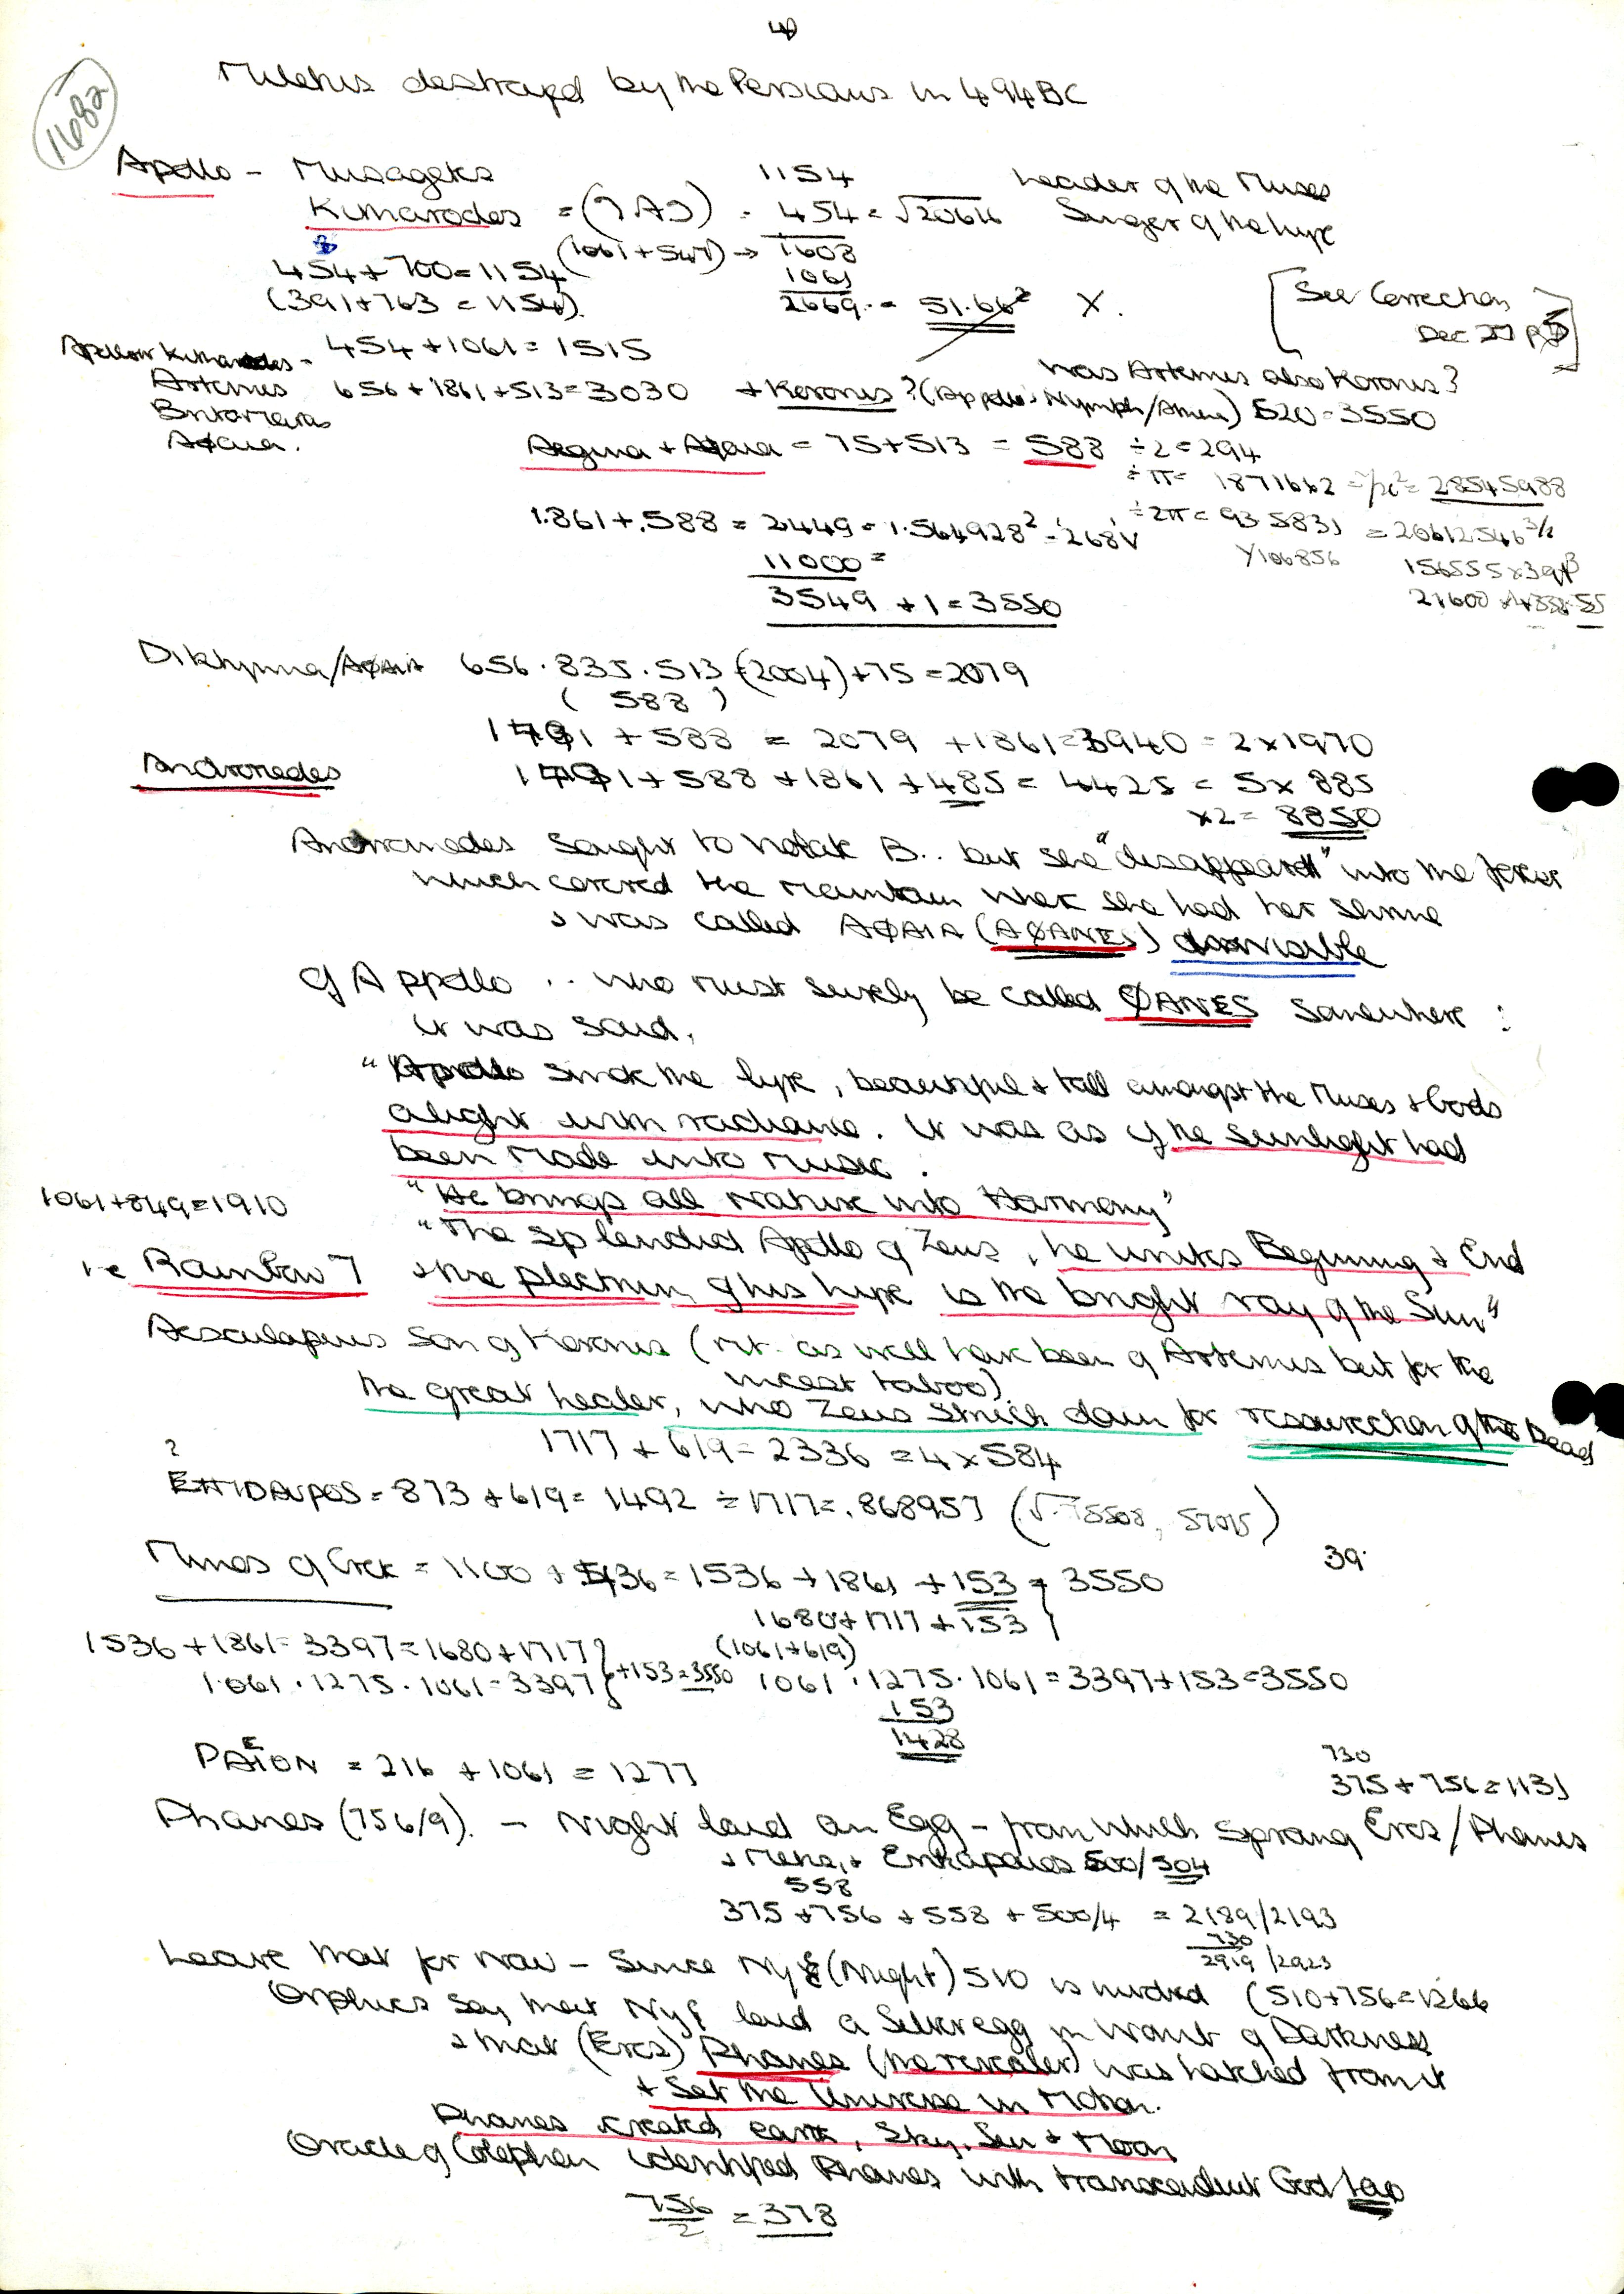 4
1168a
Miletus destroyed by the Persians in 494 BC
Apollo - Musagetes 1154 Leader of the Muses
Kitharodes = 454 = √20616 Singer of the lyre
(1061+547) → 1608
454 + 700 = 1154 1061
(391+763 = 1154) 2669 = 51.66² X.
[See Correction Dec 27 p5]
Apollo Kitharodes - 454 + 1061 = 1515
was Artemis also Koronis?
Artemis 656 + 1861 + 513 = 3030 + Koronis? (Apollo's Nymph/Amour) 520 = 3550
Britomartis
AØaia.
Aegina + AØaia = 75 + 513 = 588 ÷2 = 294
÷π = 1871662 = 28545988
1.861 + .588 = 2.449 = 1.564928² ÷2π = 935831 = 20612546
11000 = Y106856
3549 + 1 = 3550 21600
Diktynna/AØAIA 656 . 835 . 513 (2004) + 75 = 2079
( 588 )
1491 + 588 = 2079 + 1861 = 3940 = 2 x 1970
Andromedes 1491 + 588 + 1861 + 485 = 4425 = 5 x 885
x2 = 8850
Andromedes sought to violate B.. but she "disappeared" into the forest
which covered the mountain where she had her shrine
& was called AØAIA (AØANES) invisible
Of Appollo .. who must surely be called ØANES somewhere :
it was said.
"Apollo struck the lyre, beautiful & tall amongst the Muses & Gods
alight with radiance. It was as if the sunlight had
been made into music.
1061 + 849 = 1910 "He brings all Nature into Harmony"
"The splendid Apollo of Zeus, he unites Beginning & End
i.e Rainbow 7 & the plectrum of his lyre is the bright ray of the Sun"
Aesculapius son of Koronis (mt. as well have been of Artemis but for the
incest taboo)
the great healer, who Zeus struck down for resurrection of the Dead
1717 + 619 = 2336 = 4 x 584
?
EΠIDAVPOS = 873 + 619 = 1492 ÷ 1717 = .868957
39.
Minos of Crete = 1100 + 436 = 1536 + 1861 + 153 = 3550
1680 + 1717 + 153
1536 + 1861 = 3397 = 1680 + 1717 (1061+619)
1.061 . 1275 . 1061 = 3397 +153 = 3550 1061 . 1275 . 1061 = 3397 + 153 = 3550
153
1428
PAEION = 216 + 1061 = 1277 730
375 + 756 = 1131
Phanes (756/9). - Night laid an Egg - from which sprang Eros / Phanes
& Metis, & Erikapaios 500/504
558
375 + 756 + 558 + 500/4 = 2189/2193
730
2919/2923
Leave that for now - since Nyξ (Night) 510 is involved (510+756 = 1266
Orphics say that Nyξ laid a Silver egg in womb of Darkness
& that (Eros) Phanes (the revealer) was hatched from it
+ Set the Universe in Motion.
Phanes created earth, Sky, Sun + Moon
Oracle of Colophon identified Phanes with transcendent God Iao
756/2 = 378